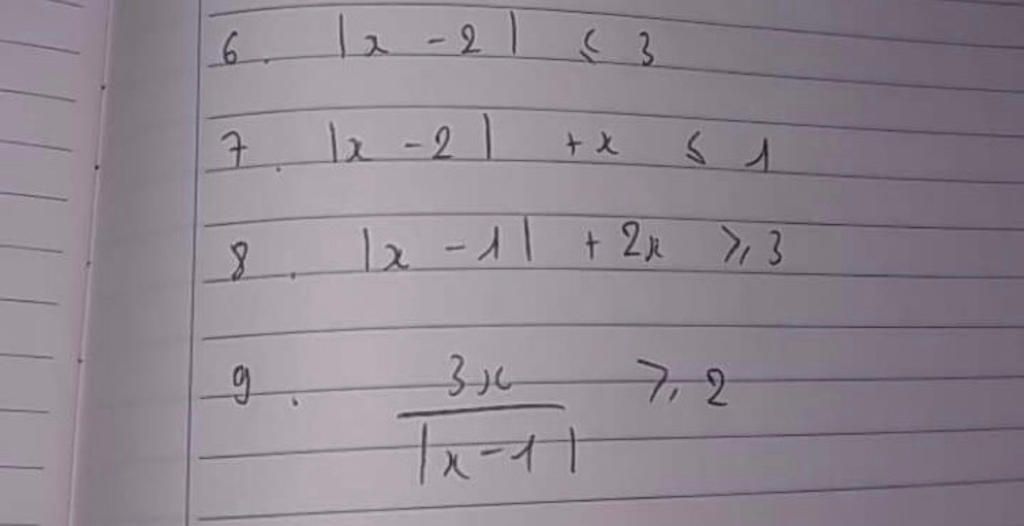 6. |x - 2| ≤ 3
7. |x - 2| + x ≤ 1
8. |x - 1| + 2x ≥ 3
9. 3x / |x - 1| ≥ 2